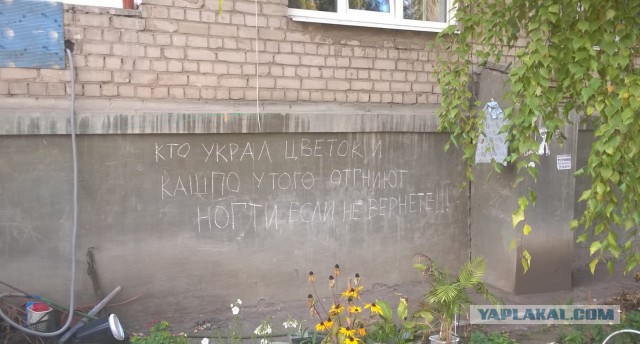 КТО УКРАЛ ЦВЕТОК И
КАШПО У ТОГО ОТГНИЮТ
НОГТИ ЕСЛИ НЕ ВЕРНЕТЕ!!!
YAPLAKAL.COM